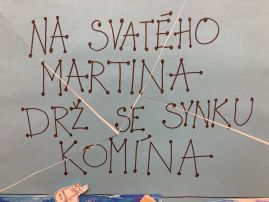 NA SVATÉHO
MARTINA
DRŽ SE SYNKU
KOMÍNA